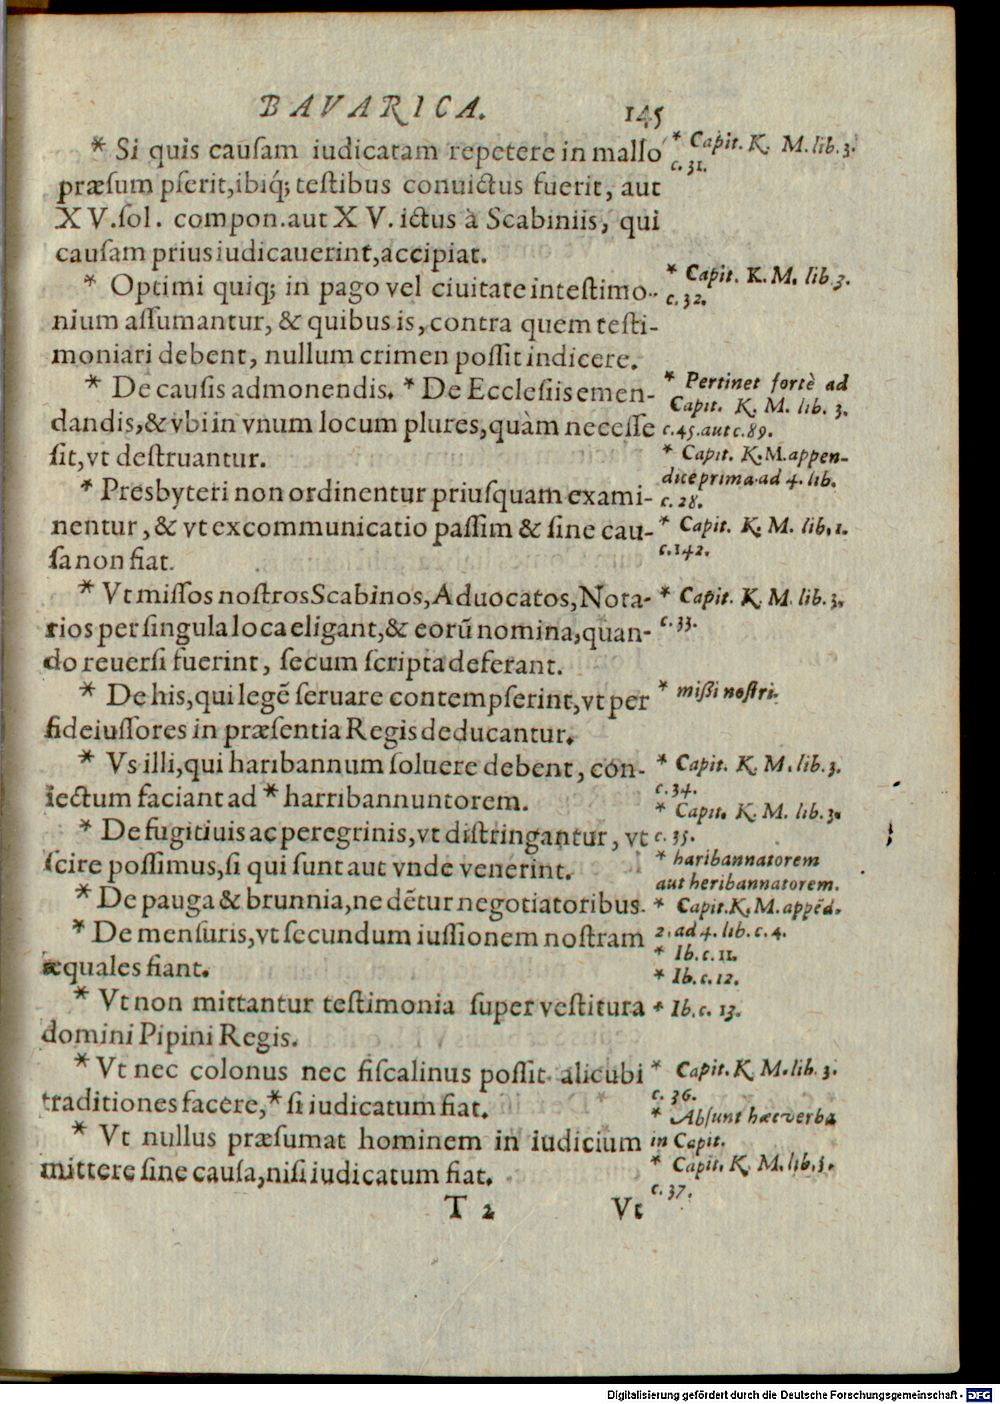 BAVARICA. 145
* Si quis causam iudicatam repetere in mallo
præsumpserit, ibiq; testibus conuictus fuerit, aut
XV. sol. compon. aut XV. ictus à Scabiniis, qui
causam prius iudicauerint, accipiat.
* Optimi quiq; in pago vel ciuitate in testimo-
nium assumantur, & quibus is, contra quem testi-
moniari debent, nullum crimen possit indicere.
* De causis admonendis. * De Ecclesiis emen-
dandis, & vbi in vnum locum plures, quàm necesse
sit, vt destruantur.
* Presbyteri non ordinentur priusquam exami-
nentur, & vt excommunicatio passim & sine cau-
sa non fiat.
* Vt missos nostros Scabinos, Aduocatos, Nota-
rios per singula loca eligant, & eorū nomina, quan-
do reuersi fuerint, secum scripta deferant.
* De his, qui legē seruare contempserint, vt per
fideiussores in præsentia Regis deducantur.
* Vs illi, qui haribannum soluere debent, con-
iectum faciant ad * harribannuntorem.
* De fugitiuis ac peregrinis, vt distringantur, vt
scire possimus, si qui sunt aut vnde venerint.
* De pauga & brunnia, ne dētur negotiatoribus.
* De mensuris, vt secundum iussionem nostram
æquales fiant.
* Vt non mittantur testimonia super vestitura
domini Pipini Regis.
* Vt nec colonus nec fiscalinus possit alicubi
traditiones facere, * si iudicatum fiat.
* Vt nullus præsumat hominem in iudicium
mittere sine causa, nisi iudicatum fiat.
T 2 Vt
* Capit. K. M. lib. 3.
c. 31.
* Capit. K. M. lib. 3.
c. 32.
* Pertinet fortè ad
Capit. K. M. lib. 3.
c. 45. aut c. 89.
* Capit. K. M. appen-
dice prima ad 4. lib.
c. 28.
* Capit. K. M. lib. 1.
c. 142.
* Capit. K. M. lib. 3.
c. 33.
* missi nostri.
* Capit. K. M. lib. 3.
c. 34.
* Capit. K. M. lib. 3.
c. 35.
* haribannatorem
aut heribannatorem.
* Capit. K. M. appēd.
2. ad 4. lib. c. 4.
* Ib. c. 11.
* Ib. c. 12.
* Ib. c. 13.
* Capit. K. M. lib. 3.
c. 36.
* Absunt hæc verba
in Capit.
* Capit. K. M. lib. 3.
c. 37.
Digitalisierung gefördert durch die Deutsche Forschungsgemeinschaft - DFG